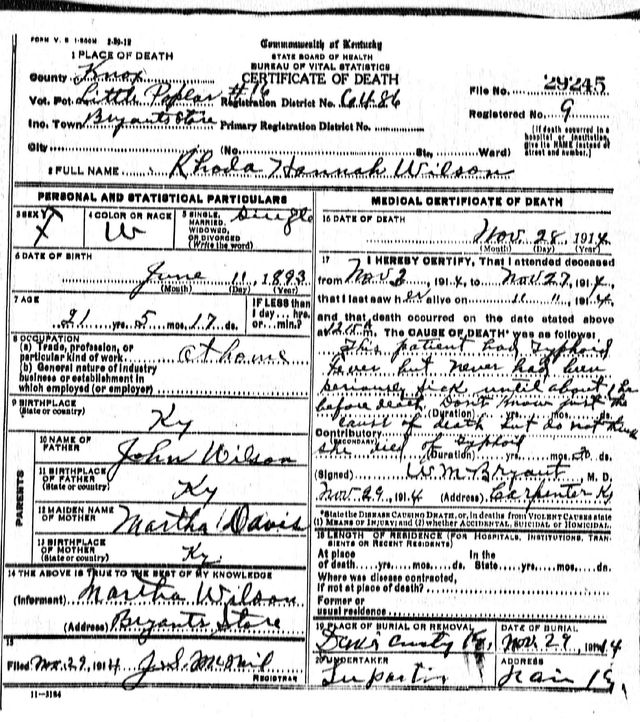 FORM V. S 1-500M 2-29-12
Commonwealth of Kentucky
STATE BOARD OF HEALTH
BUREAU OF VITAL STATISTICS
CERTIFICATE OF DEATH
1 PLACE OF DEATH
County Knox
Vot. Pct. Little Poplar #16 Registration District No. 6486
Inc. Town Bryants Store Primary Registration District No.
City (No. St., Ward)
File No. 29245
Registered No. 9
(If death occurred in a hospital or institution, give its NAME instead of street and number.)
2 FULL NAME Rhoda Hannah Wilson
PERSONAL AND STATISTICAL PARTICULARS
3 SEX
4 COLOR OR RACE W
5 SINGLE, MARRIED, WIDOWED, OR DIVORCED (Write the word) Single
6 DATE OF BIRTH
June 11, 1893
(Month) (Day) (Year)
7 AGE
21 yrs. 5 mos. 17 ds.
IF LESS than 1 day... hrs. or... min.?
8 OCCUPATION
(a) Trade, profession, or particular kind of work at home
(b) General nature of industry business or establishment in which employed (or employer)
9 BIRTHPLACE (State or country) Ky
PARENTS
10 NAME OF FATHER John Wilson
11 BIRTHPLACE OF FATHER (State or country) Ky
12 MAIDEN NAME OF MOTHER Martha Davis
13 BIRTHPLACE OF MOTHER (State or country) Ky.
14 THE ABOVE IS TRUE TO THE BEST OF MY KNOWLEDGE
(Informant) Martha Wilson
(Address) Bryants Store
15
Filed Nov. 29, 1914
REGISTRAR
11-3184
MEDICAL CERTIFICATE OF DEATH
16 DATE OF DEATH
Nov. 28, 1914
(Month) (Day) (Year)
17 I HEREBY CERTIFY, That I attended deceased
from Nov 2, 1914, to Nov 27, 1914,
that I last saw her alive on 11 11, 1914,
and that death occurred on the date stated above
at m. The CAUSE OF DEATH* was as follows:
This patient had Typhoid
fever but never had been
seriously sick until about
before death Don't know just the
(Duration) yrs. mos. ds.
cause of death but do not think
Contributory (SECONDARY)
she died of typhoid
(Duration) yrs. mos. ds.
(Signed) W M Bryant M. D.
Nov. 29, 1914 (Address) Carpenter Ky
*State the DISEASE CAUSING DEATH, or, in deaths from VIOLENT CAUSES state
(1) MEANS OF INJURY; and (2) whether ACCIDENTAL, SUICIDAL or HOMICIDAL.
18 LENGTH OF RESIDENCE (FOR HOSPITALS, INSTITUTIONS, TRANSIENTS OR RECENT RESIDENTS)
At place of death yrs. mos. ds. In the State yrs. mos. ds.
Where was disease contracted, If not at place of death?
Former or usual residence
19 PLACE OF BURIAL OR REMOVAL
DATE OF BURIAL
Nov. 29, 1914
20 UNDERTAKER
ADDRESS